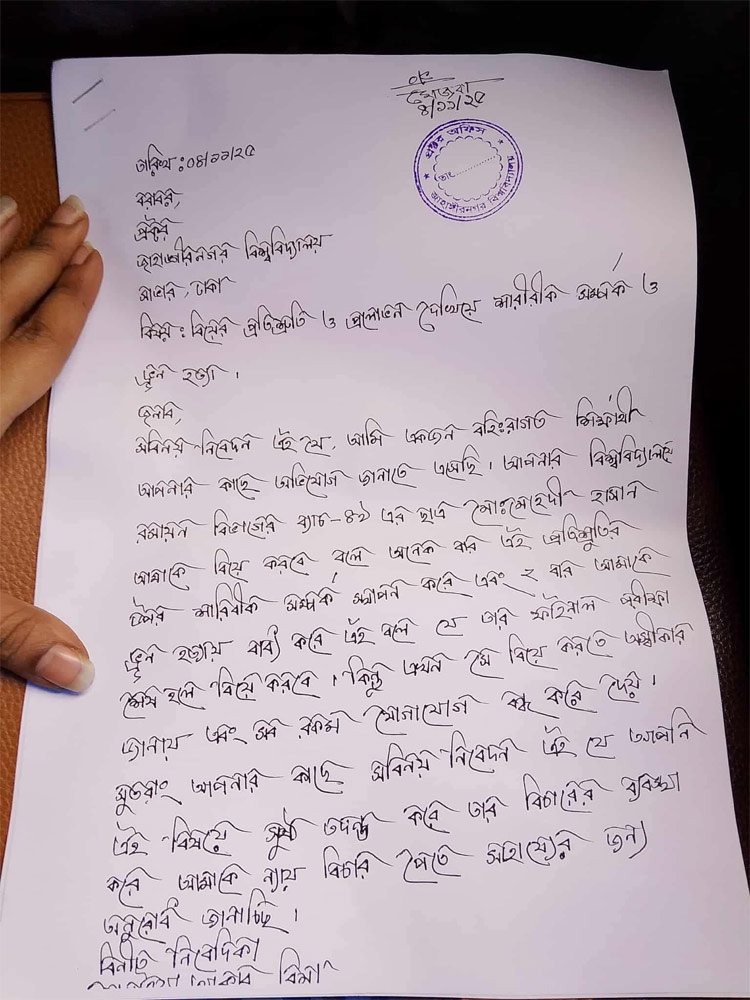 ৪/১১/২৫
প্রক্টর অফিস
তাং
জাহাঙ্গীরনগর বিশ্ববিদ্যালয়
তারিখ : ০৪/১১/২৫
বরাবর,
প্রক্টর
জাহাঙ্গীরনগর বিশ্ববিদ্যালয়
সাভার, ঢাকা
বিষয় : বিয়ের প্রতিশ্রুতি ও প্রলোভন দেখিয়ে শারীরীক সম্পর্ক ও
ভ্রূন হত্যা ।
জনাব,
সবিনয় নিবেদন এই যে, আমি একজন বহিঃরাগত শিক্ষার্থী
আপনার কাছে অভিযোগ জানাতে এসেছি । আপনার বিশ্ববিদ্যালয়ে
রসায়ন বিভাগের ব্যাচ-৪৯ এর ছাত্র মোঃমেহেদী হাসান
আমাকে বিয়ে করবে বলে অনেক বার এই প্রতিশ্রুতির
উপর শারিরীক সম্পর্ক স্থাপন করে এবং ২ বার আমাকে
ভ্রূন হত্যায় বাধ্য করে এই বলে যে তার ফাইনাল পরীক্ষা
শেষ হলে বিয়ে করবে । কিন্তু এখন সে বিয়ে করতে অস্বীকার
জানায় এবং সব রকম যোগাযোগ বন্ধ করে দেয় ।
সুতরাং আপনার কাছে সবিনয় নিবেদন এই যে আপনি
এই বিষয়ে সুষ্ঠ তদন্ত করে তার বিচারের ব্যবস্থা
করে আমাকে ন্যায় বিচার পেতে সাহায্যের জন্য
অনুরোধ জানাচ্ছি ।
বিনীত নিবেদিকা